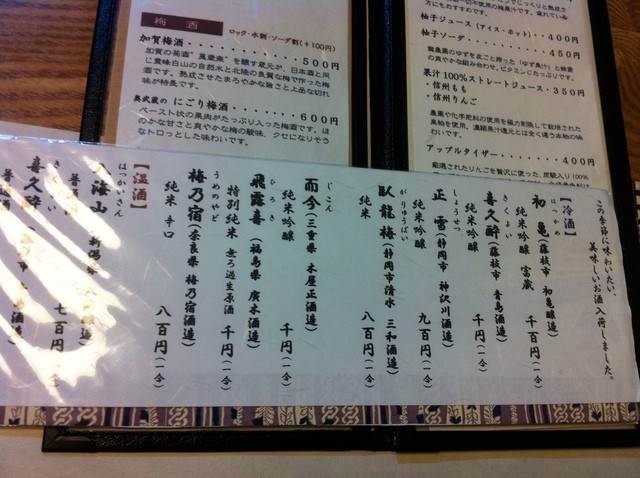 梅酒
ロック・水割・ソーダ割(+100円)
加賀梅酒・・・・・・・・・・500円
加賀の菊酒"萬歳楽"を醸す蔵元が、日本酒と同
じ霊峰白山の自然水と北陸の良質な梅で作った梅
酒です。熟成させたまろやかな旨さと上品な切れ
味が特長です。
奥武蔵の にごり梅酒・・・・・・600円
ペースト状の果肉がたっぷり入った梅酒です。ほ
のかな甘さと爽やかな梅の酸味、クセになりそう
なトロっとした味わいです。
柚子ジュース (アイス・ホット)・・400円
柚子ソーダ・・・・・・・・450円
果汁100%ストレートジュース・350円
・信州もも
・信州りんご
農薬や化学肥料の使用を極力制限して栽培された
果物を使用。濃縮果汁還元とは全く違う本物の味
わいです。
アップルタイザー・・・・・・400円
この季節に味わいたい、
美味しいお酒入荷しました。
【冷酒】
はつかめ
初亀(藤枝市 初亀醸造)
純米吟醸 富蔵 千百円(一合)
きくよい
喜久酔(藤枝市 青島酒造)
純米吟醸 千円(一合)
しょうせつ
正雪(静岡市 神沢川酒造)
純米吟醸 九百円(一合)
がりゅうばい
臥龍梅(静岡市清水 三和酒造)
純米 八百円(一合)
じこん
而今(三重県 木屋正酒造)
純米吟醸 千円(一合)
ひろき
飛露喜(福島県 廣木酒造)
特別純米 無ろ過生原酒 千円(一合)
うめのやど
梅乃宿(奈良県 梅乃宿酒造)
純米 辛口 八百円(一合)
【温酒】
はっかいさん
海山 新潟県
七百円(一合)
喜久酔